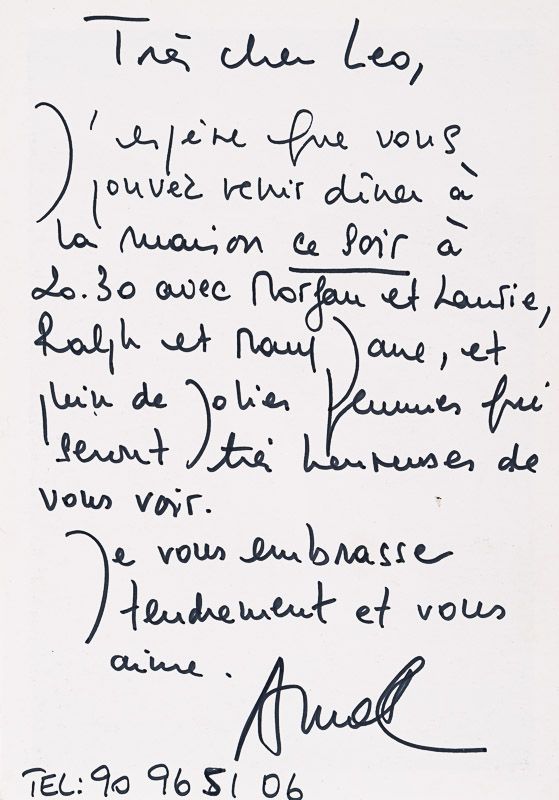 Très cher Leo,
J'espère que vous
pouvez venir dîner à
la maison ce soir à
20.30 avec Morgan et Laurie,
Ralph et Mary Jane, et
plein de Jolies Femmes qui
seront très heureuses de
vous voir.
Je vous embrasse
tendrement et vous
aime.
TEL: 90 96 51 06